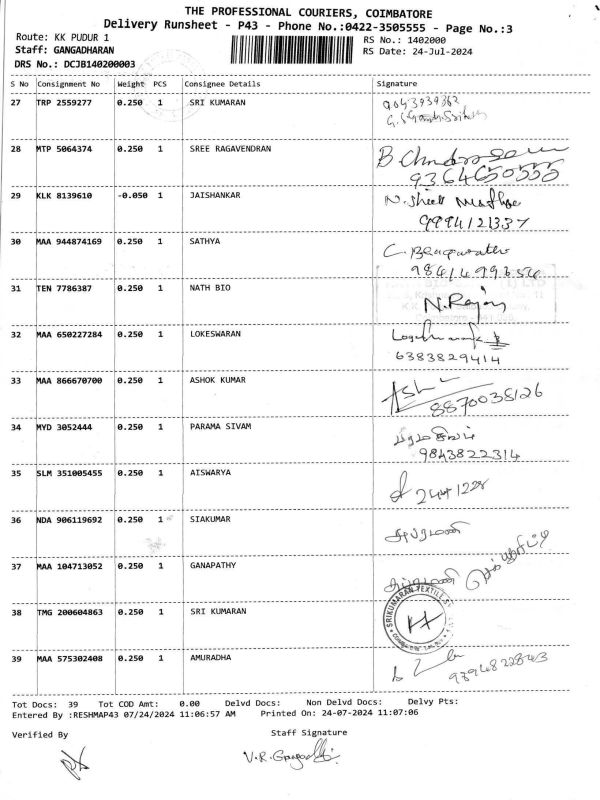 THE PROFESSIONAL COURIERS, COIMBATORE
Delivery Runsheet - P43 - Phone No.:0422-3505555 - Page No.:3
Route: KK PUDUR 1 RS No.: 1402000
Staff: GANGADHARAN RS Date: 24-Jul-2024
DRS No.: DCJB140200003
S No Consignment No Weight PCS Consignee Details Signature
27 TRP 2559277 0.250 1 SRI KUMARAN
28 MTP 5064374 0.250 1 SREE RAGAVENDRAN
9364650555
29 KLK 8139610 -0.050 1 JAISHANKAR
9994121337
30 MAA 944874169 0.250 1 SATHYA
31 TEN 7786387 0.250 1 NATH BIO
N.Rajan
32 MAA 650227284 0.250 1 LOKESWARAN
6383829414
33 MAA 866670700 0.250 1 ASHOK KUMAR
8870038126
34 MYD 3052444 0.250 1 PARAMA SIVAM
பரமசிவம்
9843822314
35 SLM 351005455 0.250 1 AISWARYA
2441228
36 NDA 906119692 0.250 1 SIAKUMAR
37 MAA 104713052 0.250 1 GANAPATHY
38 TMG 200604863 0.250 1 SRI KUMARAN
SRIKUMARAN TEXTILE
39 MAA 575302408 0.250 1 AMURADHA
Tot Docs: 39 Tot COD Amt: 0.00 Delvd Docs: Non Delvd Docs: Delvy Pts:
Entered By :RESHMAP43 07/24/2024 11:06:57 AM Printed On: 24-07-2024 11:07:06
Verified By Staff Signature